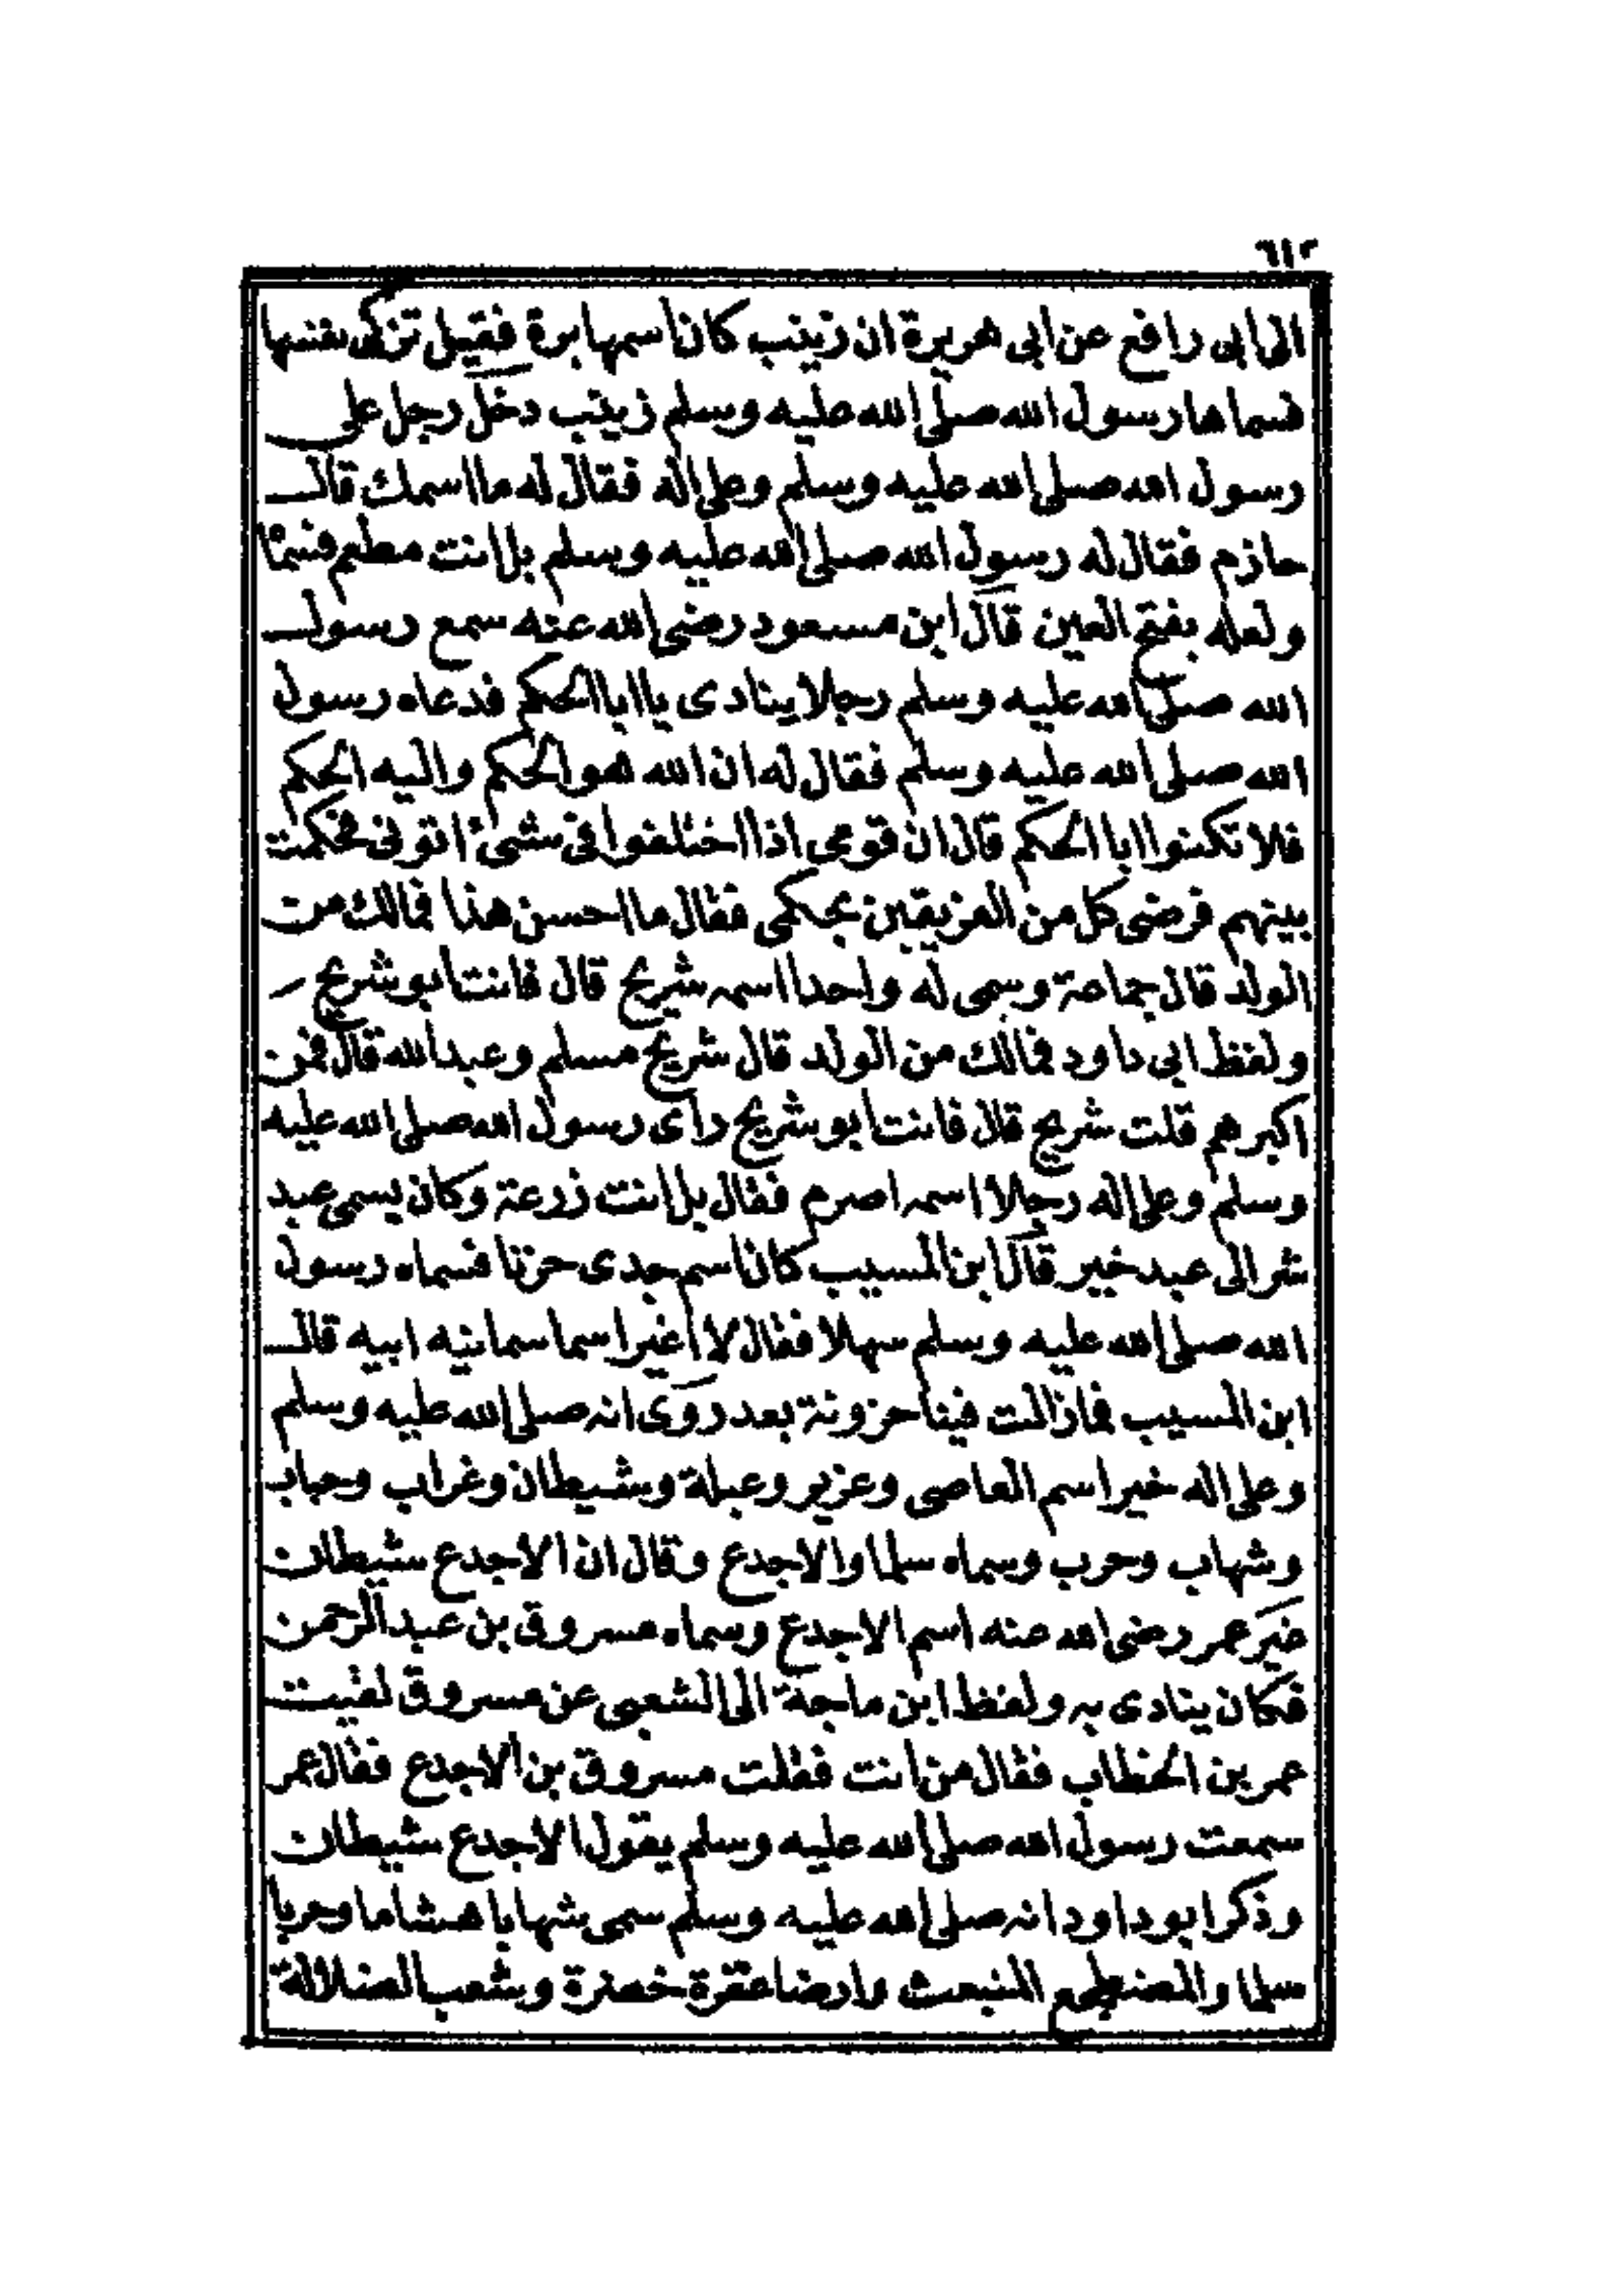 ٦١٢
الى ابى رافع عن ابى هريرة ان زينب كان اسمها برة فقيل تزكى نفسها
فسماها رسول الله صلى الله عليه وسلم زينب دخل رجل على
رسول الله صلى الله عليه وسلم وعلى اله فقال له ما اسمك قال
حازم فقال له رسول الله صلى الله عليه وسلم بل انت مطعم
ولعله بفتح العين قال ابن مسعود رضى الله عنه سمع رسول
الله صلى الله عليه وسلم رجلا ينادى يا ابا الحكم فدعاه رسول
الله صلى الله عليه وسلم فقال له ان الله هو الحكم واليه الحكم
فلا تكنوا ابا الحكم قال ان قومى اذا اختلفوا فى شئ اتونى فحكمت
بينهم فرضى كل من الفريقين بحكمى فقال ما احسن هذا فمالك من
الولد قال جماعة وسمى له واحدا اسمه شريح قال فانت ابو شريح
ولفظ ابى داود فمالك من الولد قال شريح مسلم وعبد الله قال فمن
اكبرهم قلت شريح قال فانت ابو شريح رأى رسول الله صلى الله عليه
وسلم وعلى اله رجلا اسمه اصرم فقال بل انت زرعة وكان يسمى عبد
شر الى عبد خير قال ابن المسيب كان اسم جدى حزنا فسماه رسول
الله صلى الله عليه وسلم سهلا فقال لا اغير اسما سمانيه ابيه قال
ابن المسيب فما زالت فينا حزونة بعد روى انه صلى الله عليه وسلم
وعلى اله غير اسم العاصى وعزيز وعبلة وشيطان وغراب وحباب
وشهاب وحرب وسماه سلما والاجدع وقال ان الاجدع شيطان
غير عمر رضى الله عنه اسم الاجدع وسماه مسروق بن عبد الرحمن
فكان ينادى به ولفظ ابن ماجة الى الشعبى عن مسروق لقيت
عمر بن الخطاب فقال من انت فقلت مسروق بن الاجدع فقال عمر
سمعت رسول الله صلى الله عليه وسلم يقول الاجدع شيطان
وذكر ابو داود انه صلى الله عليه وسلم سمى شهابا هشاما وحربا
سلما والمضطجع المنبعث وارضا عقرة خضرة وشعب الضلالة